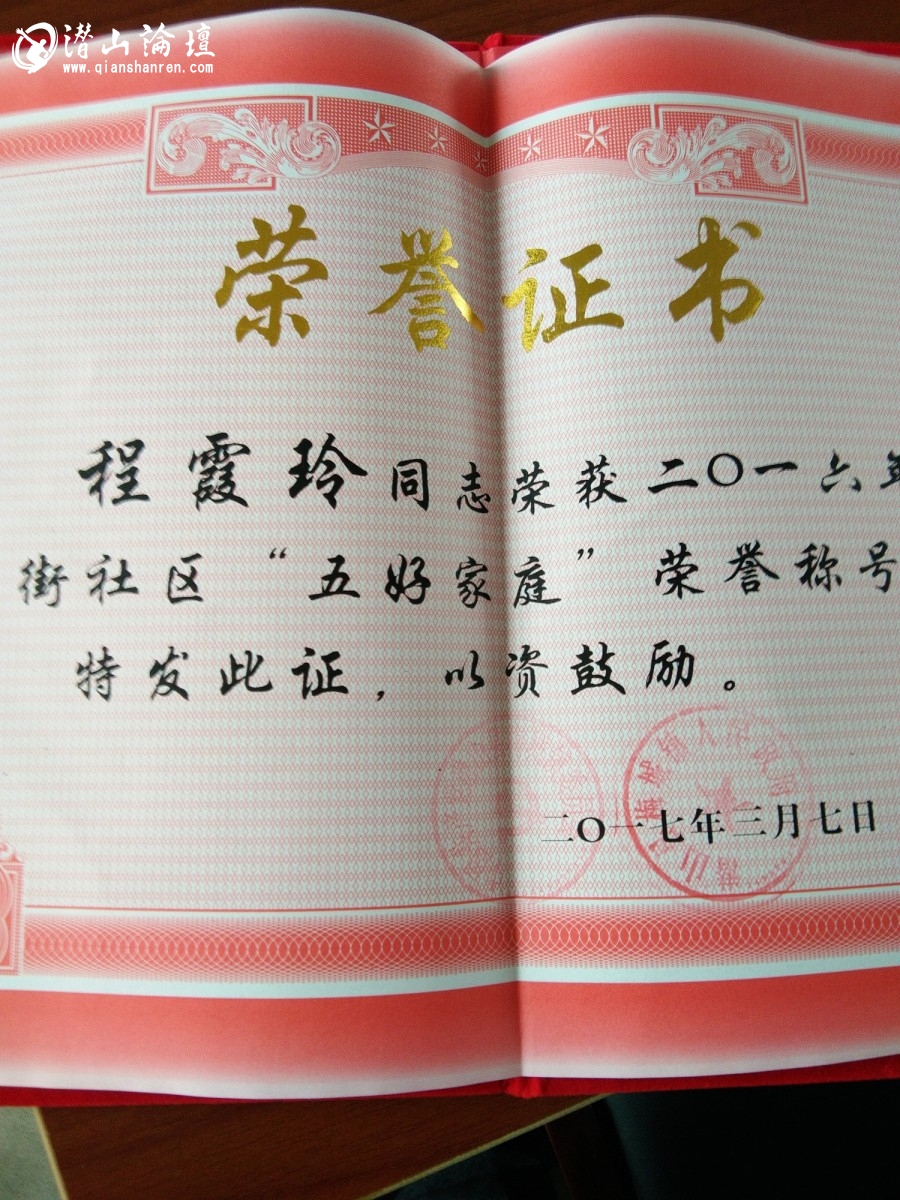 潜山論壇
www.qianshanren.com
荣誉证书
程霞玲同志荣获二〇一六年
街社区“五好家庭”荣誉称号
特发此证，以资鼓励。
二〇一七年三月七日